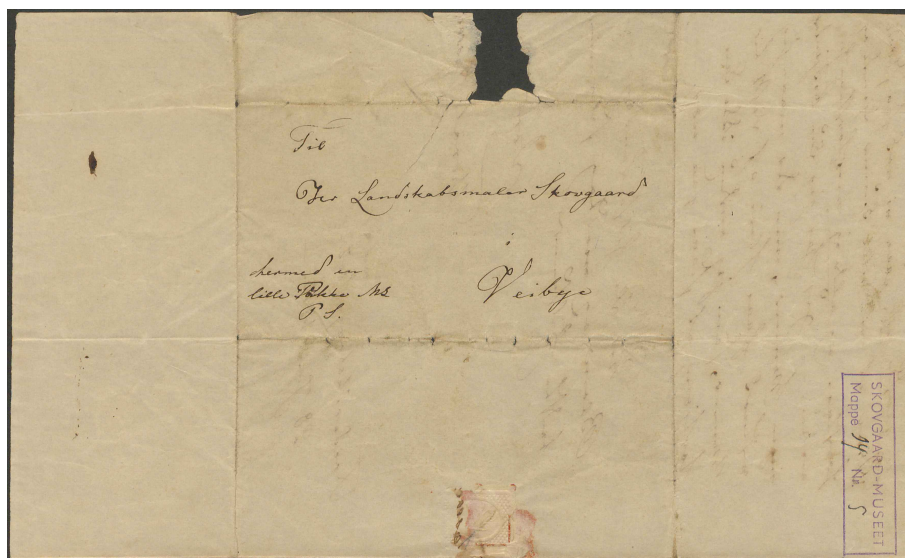 Til
Her Landskabsmaler Skovgaard
i
Veibye
hermed en
lille Pakke Mk
P S.
SKOVGAARD-MUSEET
Mappe 14 Nr. 5